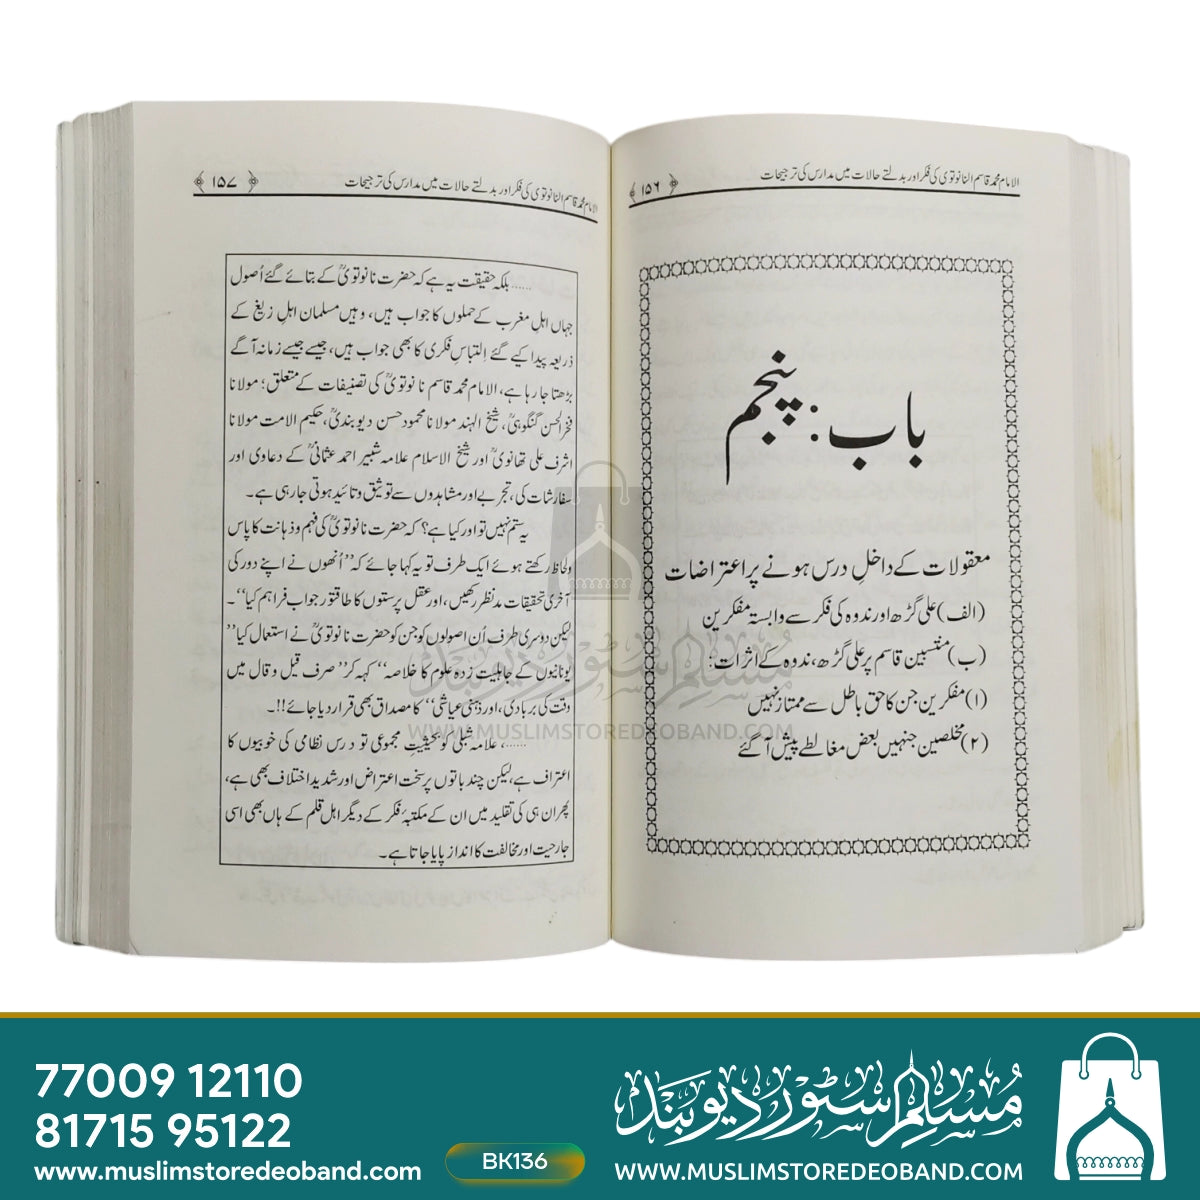 الامام محمد قاسم النانوتویؒ کی فکر اور بدلتے حالات میں مدارس کی ترجیحات ﴿۱۵۶﴾
باب: پنجم
معقولات کے داخلِ درس ہونے پر اعتراضات
(الف) علی گڑھ اور ندوہ کی فکر سے وابستہ مفکرین
(ب) منتسبین قاسم پر علی گڑھ، ندوہ کے اثرات:
(۱) مفکرین جن کا حق باطل سے ممتاز نہیں
(۲) مخلصین جنہیں بعض مغالطے پیش آ گئے
الامام محمد قاسم النانوتویؒ کی فکر اور بدلتے حالات میں مدارس کی ترجیحات ﴿۱۵۷﴾
......بلکہ حقیقت یہ ہے کہ حضرت نانوتویؒ کے بتائے گئے اُصول
جہاں اہلِ مغرب کے حملوں کا جواب ہیں، وہیں مسلمان اہلِ زیغ کے
ذریعہ پیدا کیے گئے التباسِ فکری کا بھی جواب ہیں، جیسے جیسے زمانہ آگے
بڑھتا جا رہا ہے، الامام محمد قاسم نانوتویؒ کی تصنیفات کے متعلق؛ مولانا
فخر الحسن گنگوہیؒ، شیخ الہند مولانا محمود حسن دیوبندیؒ، حکیم الامت مولانا
اشرف علی تھانویؒ اور شیخ الاسلام علامہ شبیر احمد عثمانیؒ کے دعاوی اور
سفارشات کی، تجربے اور مشاہدوں سے توثیق و تائید ہوتی جا رہی ہے۔
یہ ستم نہیں تو اور کیا ہے؟ کہ حضرت نانوتویؒ کی فہم و ذہانت کا پاس
ولحاظ رکھتے ہوئے ایک طرف تو یہ کہا جائے کہ ”اُنھوں نے اپنے دور کی
آخری تحقیقات مدنظر رکھیں، اور عقل پرستوں کا طاقتور جواب فراہم کیا“۔
لیکن دوسری طرف اُن اصولوں کو جن کو حضرت نانوتویؒ نے استعمال کیا ”
یونانیوں کے جاہلیت زدہ علوم کا خلاصہ“ کہہ کر ”صرف قیل و قال میں
وقت کی بربادی، اور ذہنی عیاشی“ کا مصداق بھی قرار دیا جائے!!۔
......، علامہ شبلی کو بحیثیتِ مجموعی تو درس نظامی کی خوبیوں کا
اعتراف ہے، لیکن چند باتوں پر سخت اعتراض اور شدید اختلاف بھی ہے،
پھر ان ہی کی تقلید میں ان کے مکتبۂ فکر کے دیگر اہل قلم کے ہاں بھی اسی
جارحیت اور مخالفت کا انداز پایا جاتا ہے۔
مسلم سٹور دیوبند
WWW.MUSLIMSTOREDEOBAND.COM
77009 12110
81715 95122
www.muslimstoredeoband.com
BK136
مسلم سٹور دیوبند
WWW.MUSLIMSTOREDEOBAND.COM